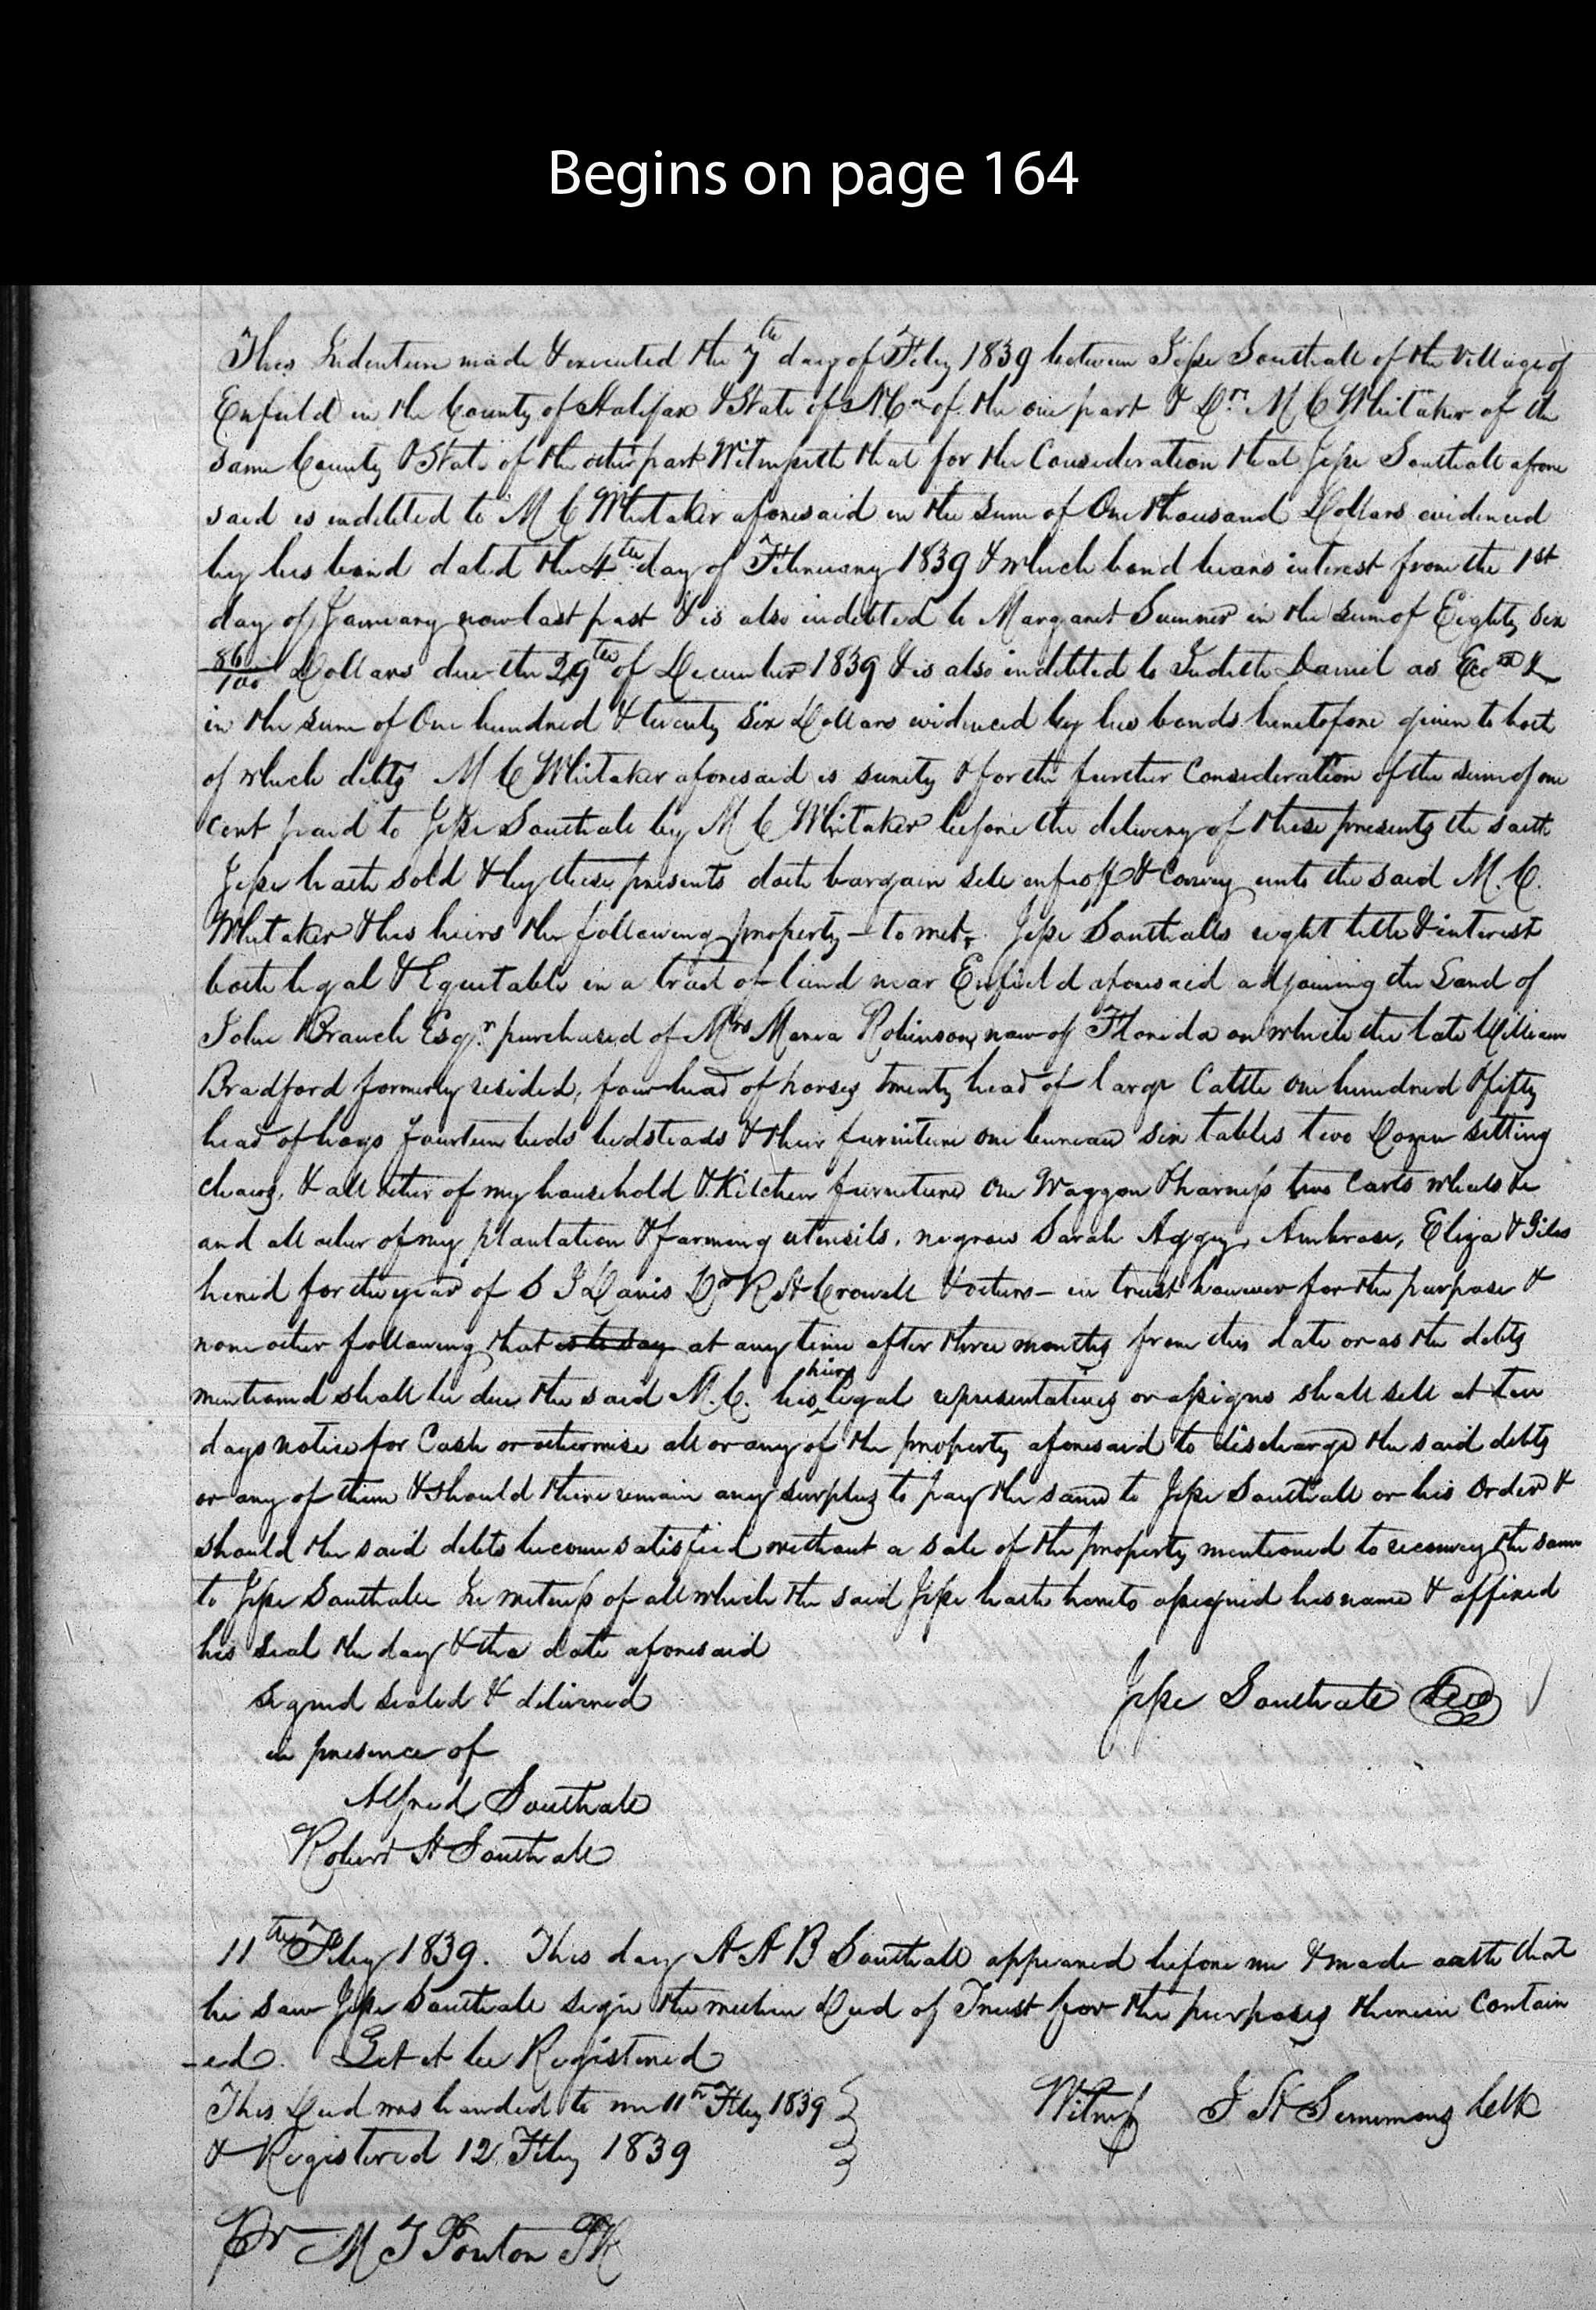 Begins on page 164
This Indenture made & executed the 7th day of Feby 1839 between Jesse Southall of the Village of
Enfield in the County of Halifax & State of N Ca of the one part & Dr. M C Whitaker of the
same County & State of the other part Witnesseth that for the Consideration that Jesse Southall afore
said is indebted to M C Whitaker aforesaid in the sum of One thousand Dollars evidenced
by his bond dated the 4th day of February 1839 & which bond bears interest from the 1st
day of January now last past & is also indebted to Margaret Sumner in the sum of Eighty six
86/100 Dollars due the 29th of December 1839 & is also indebted to Judith Daniel as
in the sum of One hundred & twenty six Dollars evidenced by his bonds heretofore given to both
of which debts M C Whitaker aforesaid is surety & for the further Consideration of the sum of one
cent paid to Jesse Southall by M C Whitaker before the delivery of these presents the saith
Jesse hath sold & by these presents doth bargain sell enfeoff & Convey unto the said M. C.
Whitaker & his heirs the following property – to wit, Jesse Southalls right title & interest
both legal & Equitable in a tract of land near Enfield aforesaid adjoining the Land of
John Branch Esqr. purchased of Mrs Maria Robinson, now of Florida on which the late William
Bradford formerly resided, four head of horses twenty head of large Cattle one hundred & fifty
head of hogs fourteen beds bedsteads & their furniture one bureau six tables two Dozen sitting
chairs, & all other of my household & Kitchen furniture One Waggon & harness two Carts wheels &c
and all other of my plantation & farming utensils, negroes Sarah Aggy, Ambrose, Eliza & Giles
hired for the year of S J Davis Dr R H Crowell & others – in trust however for the purpose &
none other following that is to say at any time after three months from this date or as the debts
mentioned shall be due the said M. C. his heirs legal representatives or assigns shall sell at ten
days notice for Cash or otherwise all or any of the property aforesaid to discharge the said debts
or any of them & should there remain any surplus to pay the same to Jesse Southall or his Order &
should the said debts become satisfied without a sale of the property mentioned to reconvey the same
to Jesse Southall In witness of all which the said Jesse hath hereto assigned his name & affixed
his seal the day & the date aforesaid
Signed sealed & delivered
Jesse Southall Seal
in presence of
Alfred Southall
Robert H Southall
11th Feby 1839. This day A A B Southall appeared before me & made oath that
he saw Jesse Southall sign the within Deed of Trust for the purposes therein Contain
-ed. Let it be Registered
This Deed was handed to me 11th Feby 1839
Witness J H Simmons Clk
& Registered 12 Feby 1839
Pr M T Ponton PR